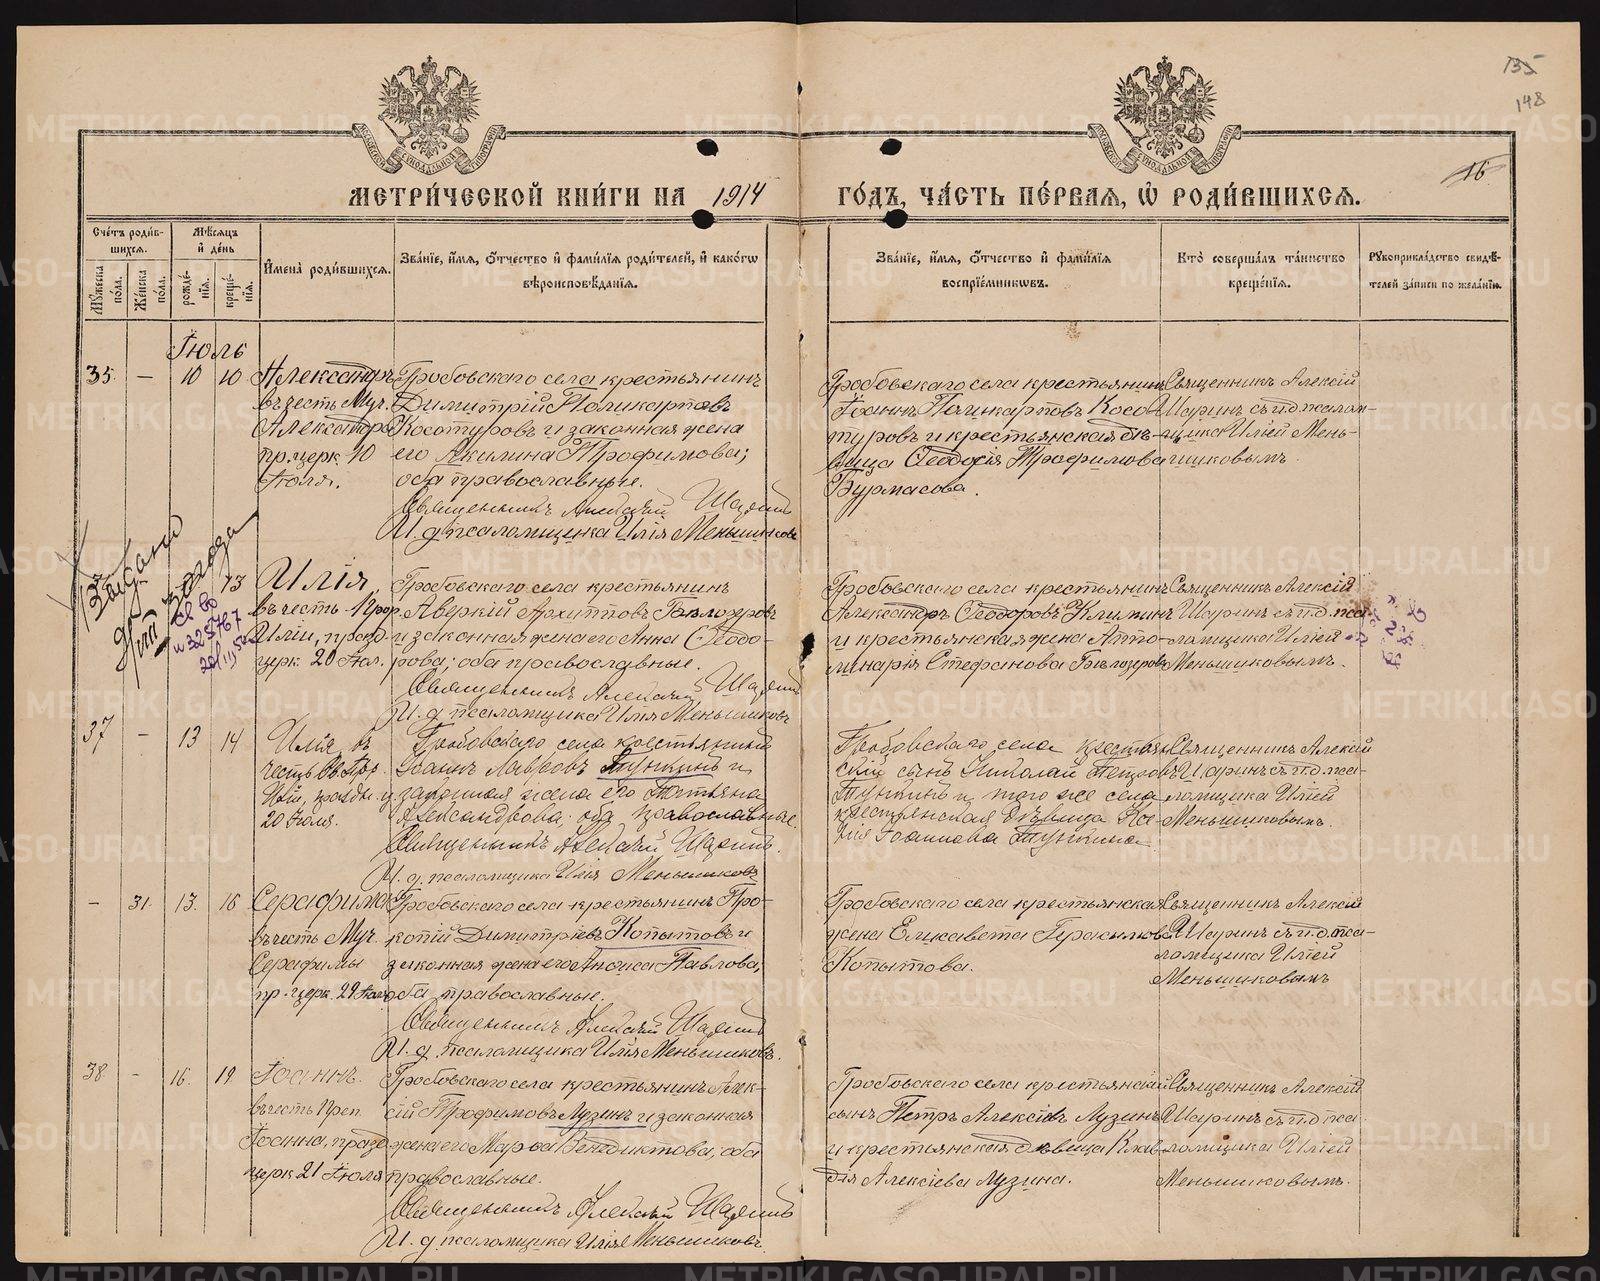 135
148
16
МЕТРИ́ЧЕСКОЙ КНИ́ГИ НА 1914 ГО́ДЪ, ЧА́СТЬ ПЕ́РВАЯ, Ѡ҆ РОДИ́ВШИХСЯ.
Сче́тъ роди́в-
шихся.
Мѣ́сяцъ
и҆ де́нь
Мꙋ́жеска по́ла.
Же́нска по́ла.
рожде́-
нїя.
креще́-
нїя.
И҆мена̀ роди́вшихся.
Зва́нїе, и҆́мя, ѻ҆́тчество и҆ фами́лїя роди́телей, и҆ како́гѡ
вѣроисповѣ́данїя.
Зва́нїе, и҆́мя, ѻ҆́тчество и҆ фами́лїя
воспрїе́мниковъ.
Кто̀ соверша́лъ та́инство
креще́нїя.
Рꙋкоприкла́дство свидѣ́-
телей за́писи по жела́нїю.
Іюль
35. — 10 10
Александръ
въ честь Муч.
Александра
пр. церк. 10
Іюля.
Гробовскаго села крестьянинъ
Димитрій Поликарповъ
Косотуровъ и законная жена
его Акилина Трофимова;
оба православные.
Священникъ Алексій Шаринъ
И. д. псаломщика Илія Меньшиковъ
Гробовскаго села крестьянинъ
Іоаннъ Поликарповъ Косо-
туровъ и крестьянская дѣ-
вица Ѳеодосія Трофимова
Бурмасова.
Священникъ Алексій
Шаринъ съ и.д. псалом-
щика Иліей Мень-
шиковымъ.
13
Илія,
въ честь Прор.
Иліи, празд.
церк. 20 Іюл.
Гробовскаго села крестьянинъ
Аверкій Архипповъ Бѣлозеровъ
и законная жена его Анна Ѳеодо-
рова; оба православные.
Священникъ Алексій Шаринъ
И. д. псаломщика Илія Меньшиковъ
Гробовскаго села крестьянинъ
Александръ Ѳеодоровъ Клипинъ
и крестьянская жена Аппо-
линарія Стефанова Бѣлозерова
Священникъ Алексій
Шаринъ съ и.д. пса-
ломщика Иліей
Меньшиковымъ.
37 — 13 14
Илія, въ
честь Св. Прр.
Иліи, праздн.
20 Іюля.
Гробовскаго села крестьянинъ
Іоаннъ Лавровъ Тункинъ и
законная жена его Татьяна
Александрова, оба православные.
Священникъ Алексій Шаринъ.
И. д. псаломщика Илія Меньшиковъ
Гробовскаго села крестьян-
скій сынъ Николай Петровъ
Тункинъ и того же села
крестьянская дѣвица Кс-
нія Іоаннова Тункина
Священникъ Алексій
Шаринъ съ и.д. пса-
ломщика Иліей
Меньшиковымъ.
— 31. 13. 16
Серафима
въ честь Муч.
Серафимы
пр. церк. 29 Іюля
Гробовскаго села крестьянинъ Про-
копій Димитріевъ Копытовъ и
законная жена его Анфиса Павлова,
оба православные.
Священникъ Алексій Шаринъ
И. д. псаломщика Илія Меньшиковъ.
Гробовскаго села крестьянская
жена Елисавета Герасимова
Копытова.
Священникъ Алексій
Шаринъ съ и.д. пса-
ломщика Иліей
Меньшиковымъ
38 — 16. 19.
Іоаннъ.
въ честь Преп.
Іоанна, празд.
церк. 21 Іюля
Гробовскаго села крестьянинъ Алек-
сій Трофимовъ Лузинъ и законная
жена его Марѳа Венедиктова, оба
православные.
Священникъ Алексій Шаринъ
И. д. псаломщика Илія Меньшиковъ.
Гробовскаго села крестьянскій
сынъ Петръ Алексіевъ Лузинъ
и крестьянская дѣвица Клав-
дія Алексіева Лузина.
Священникъ Алексій
Шаринъ съ и.д. пса-
ломщика Иліей
Меньшиковымъ.
METRIKI.GASO-URAL.RU